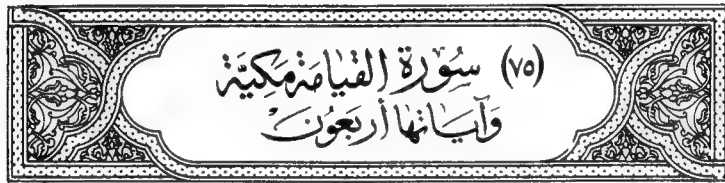 (٧٥) سُورَةِ القِيَامَة مَكِيَّة
وَآيَاتهَا أَربَعُونَ